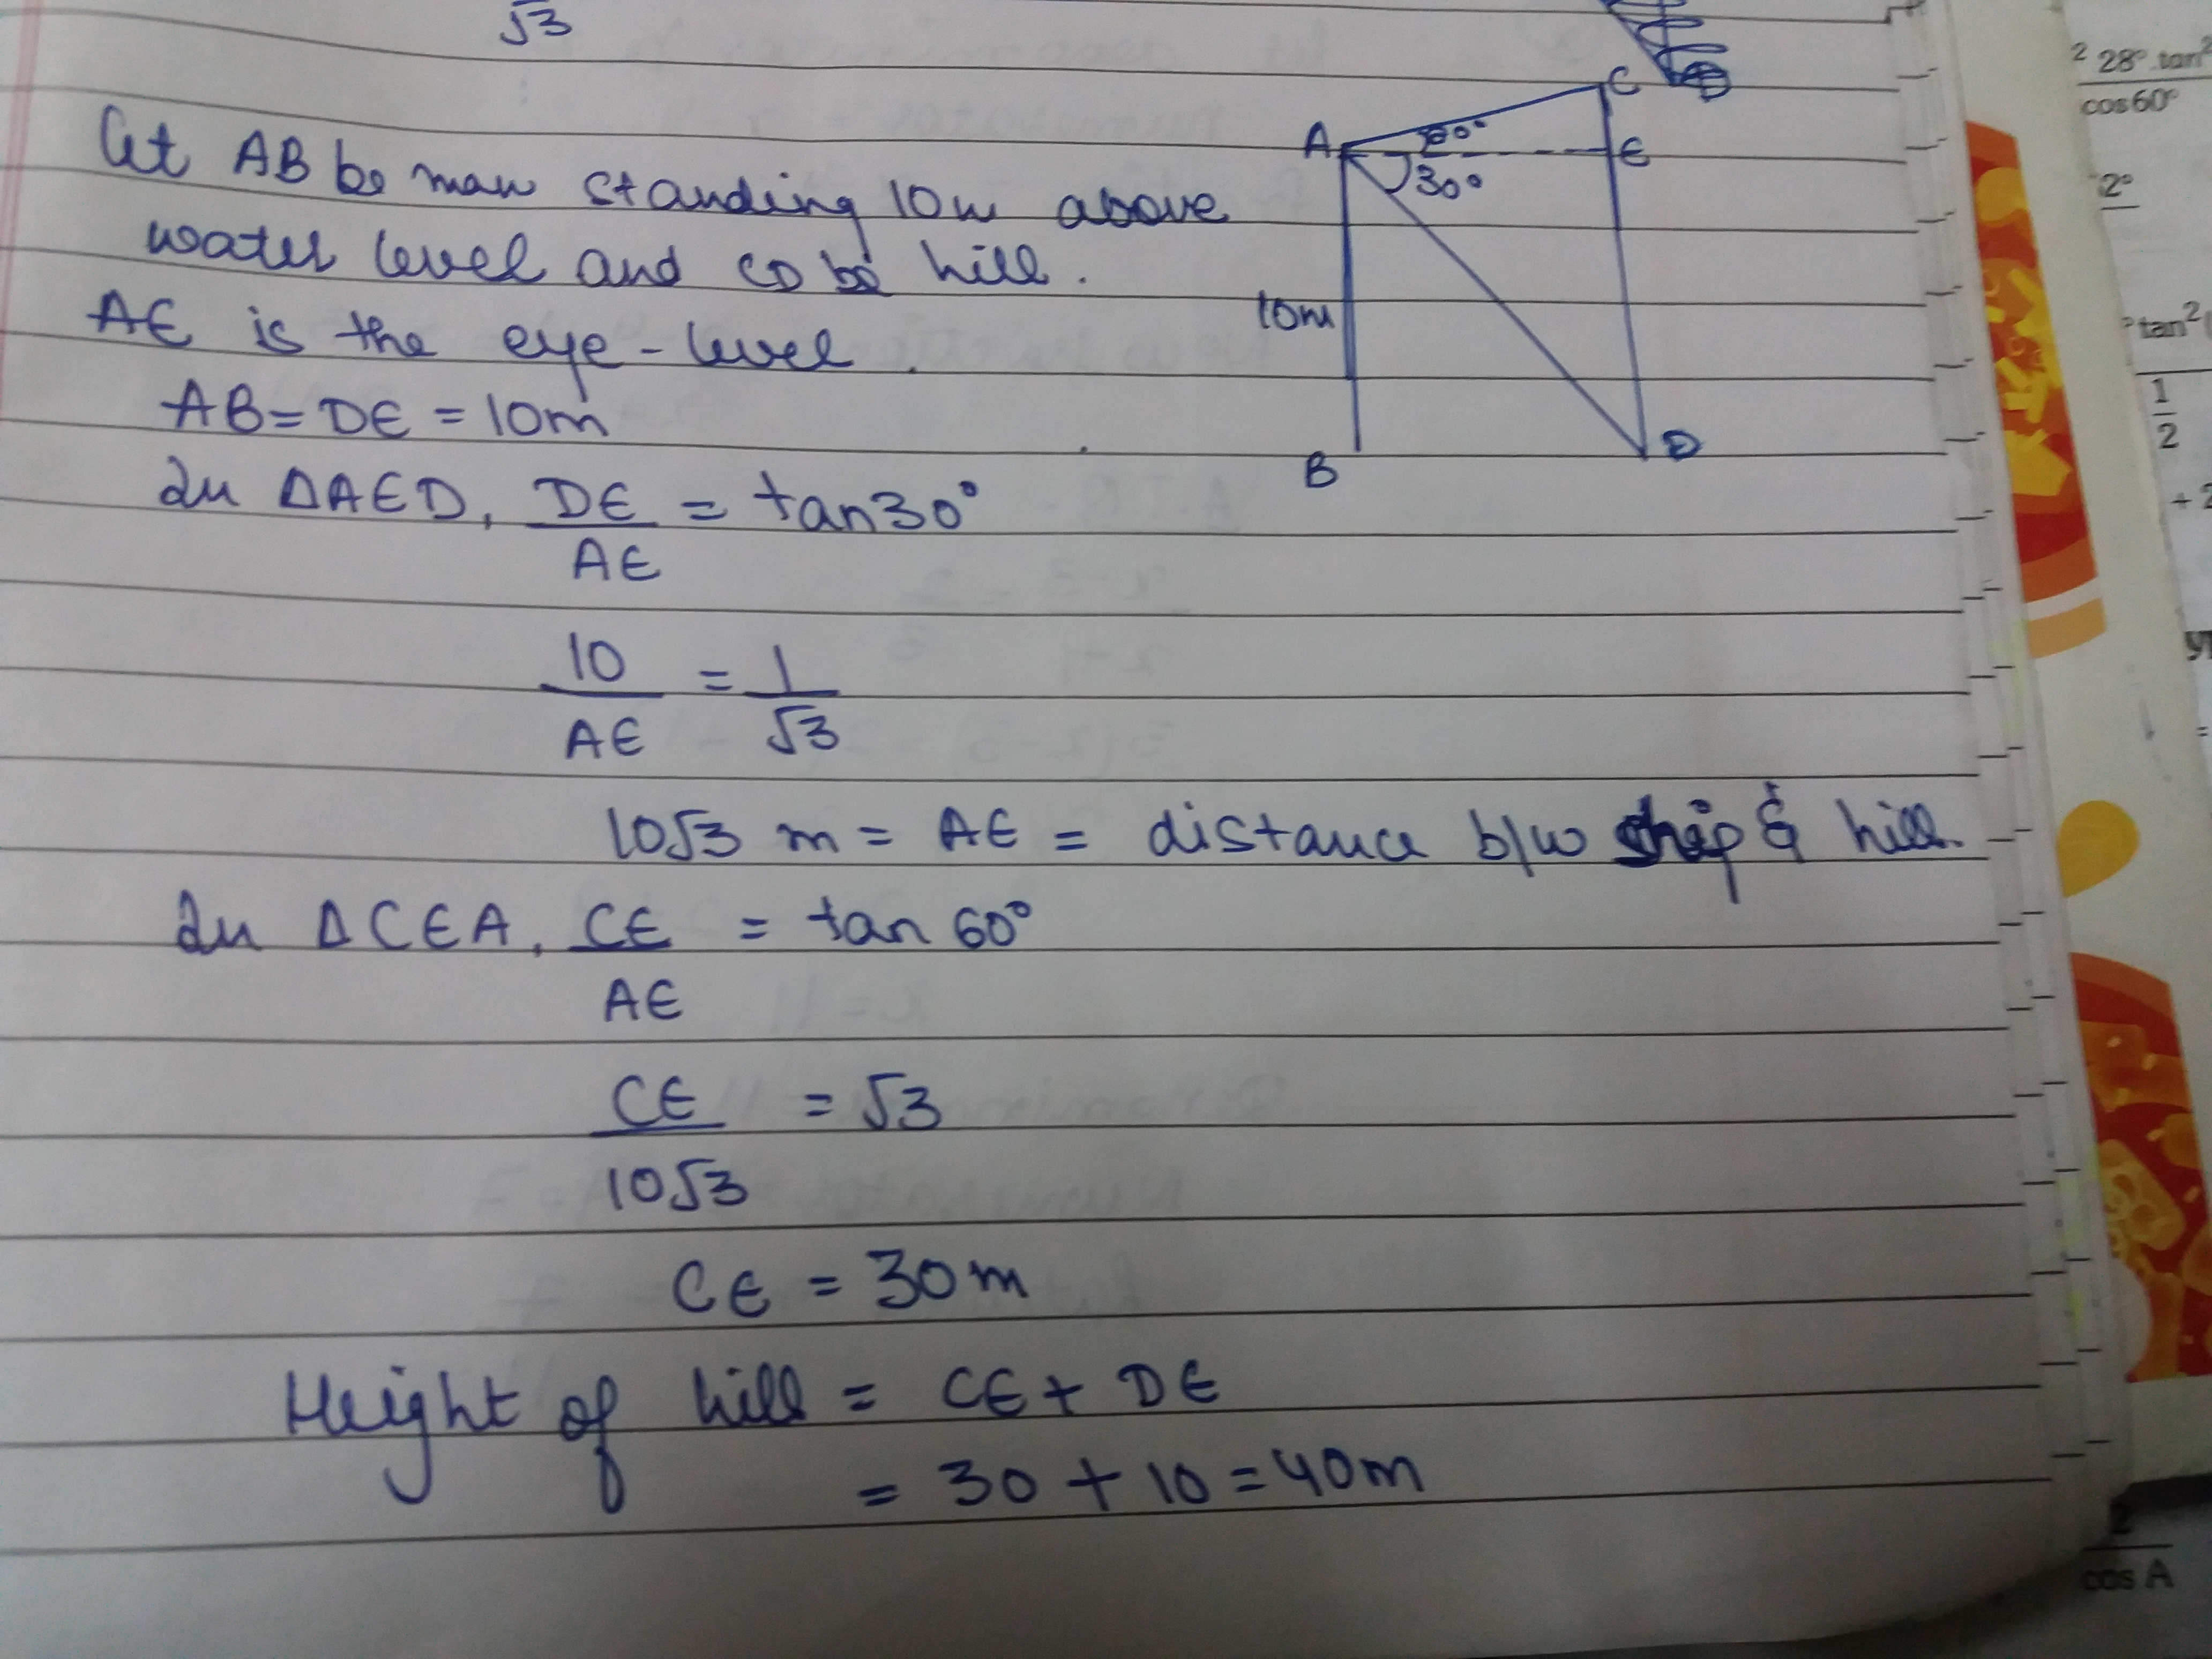 √3
let AB be man standing 10m above
water level and CD be hill.
AE is the eye-level.
AB = DE = 10m
In ΔAED, DE/AE = tan30°
10/AE = 1/√3
10√3 m = AE = distance b/w ship & hill.
In ΔCEA, CE/AE = tan 60°
CE/10√3 = √3
CE = 30m
Height of hill = CE + DE
= 30 + 10 = 40m
C
A
60°
E
30°
10m
B
D
2 28° tan2
cos60°
2°
tan2
1/2
+ 2
cos A